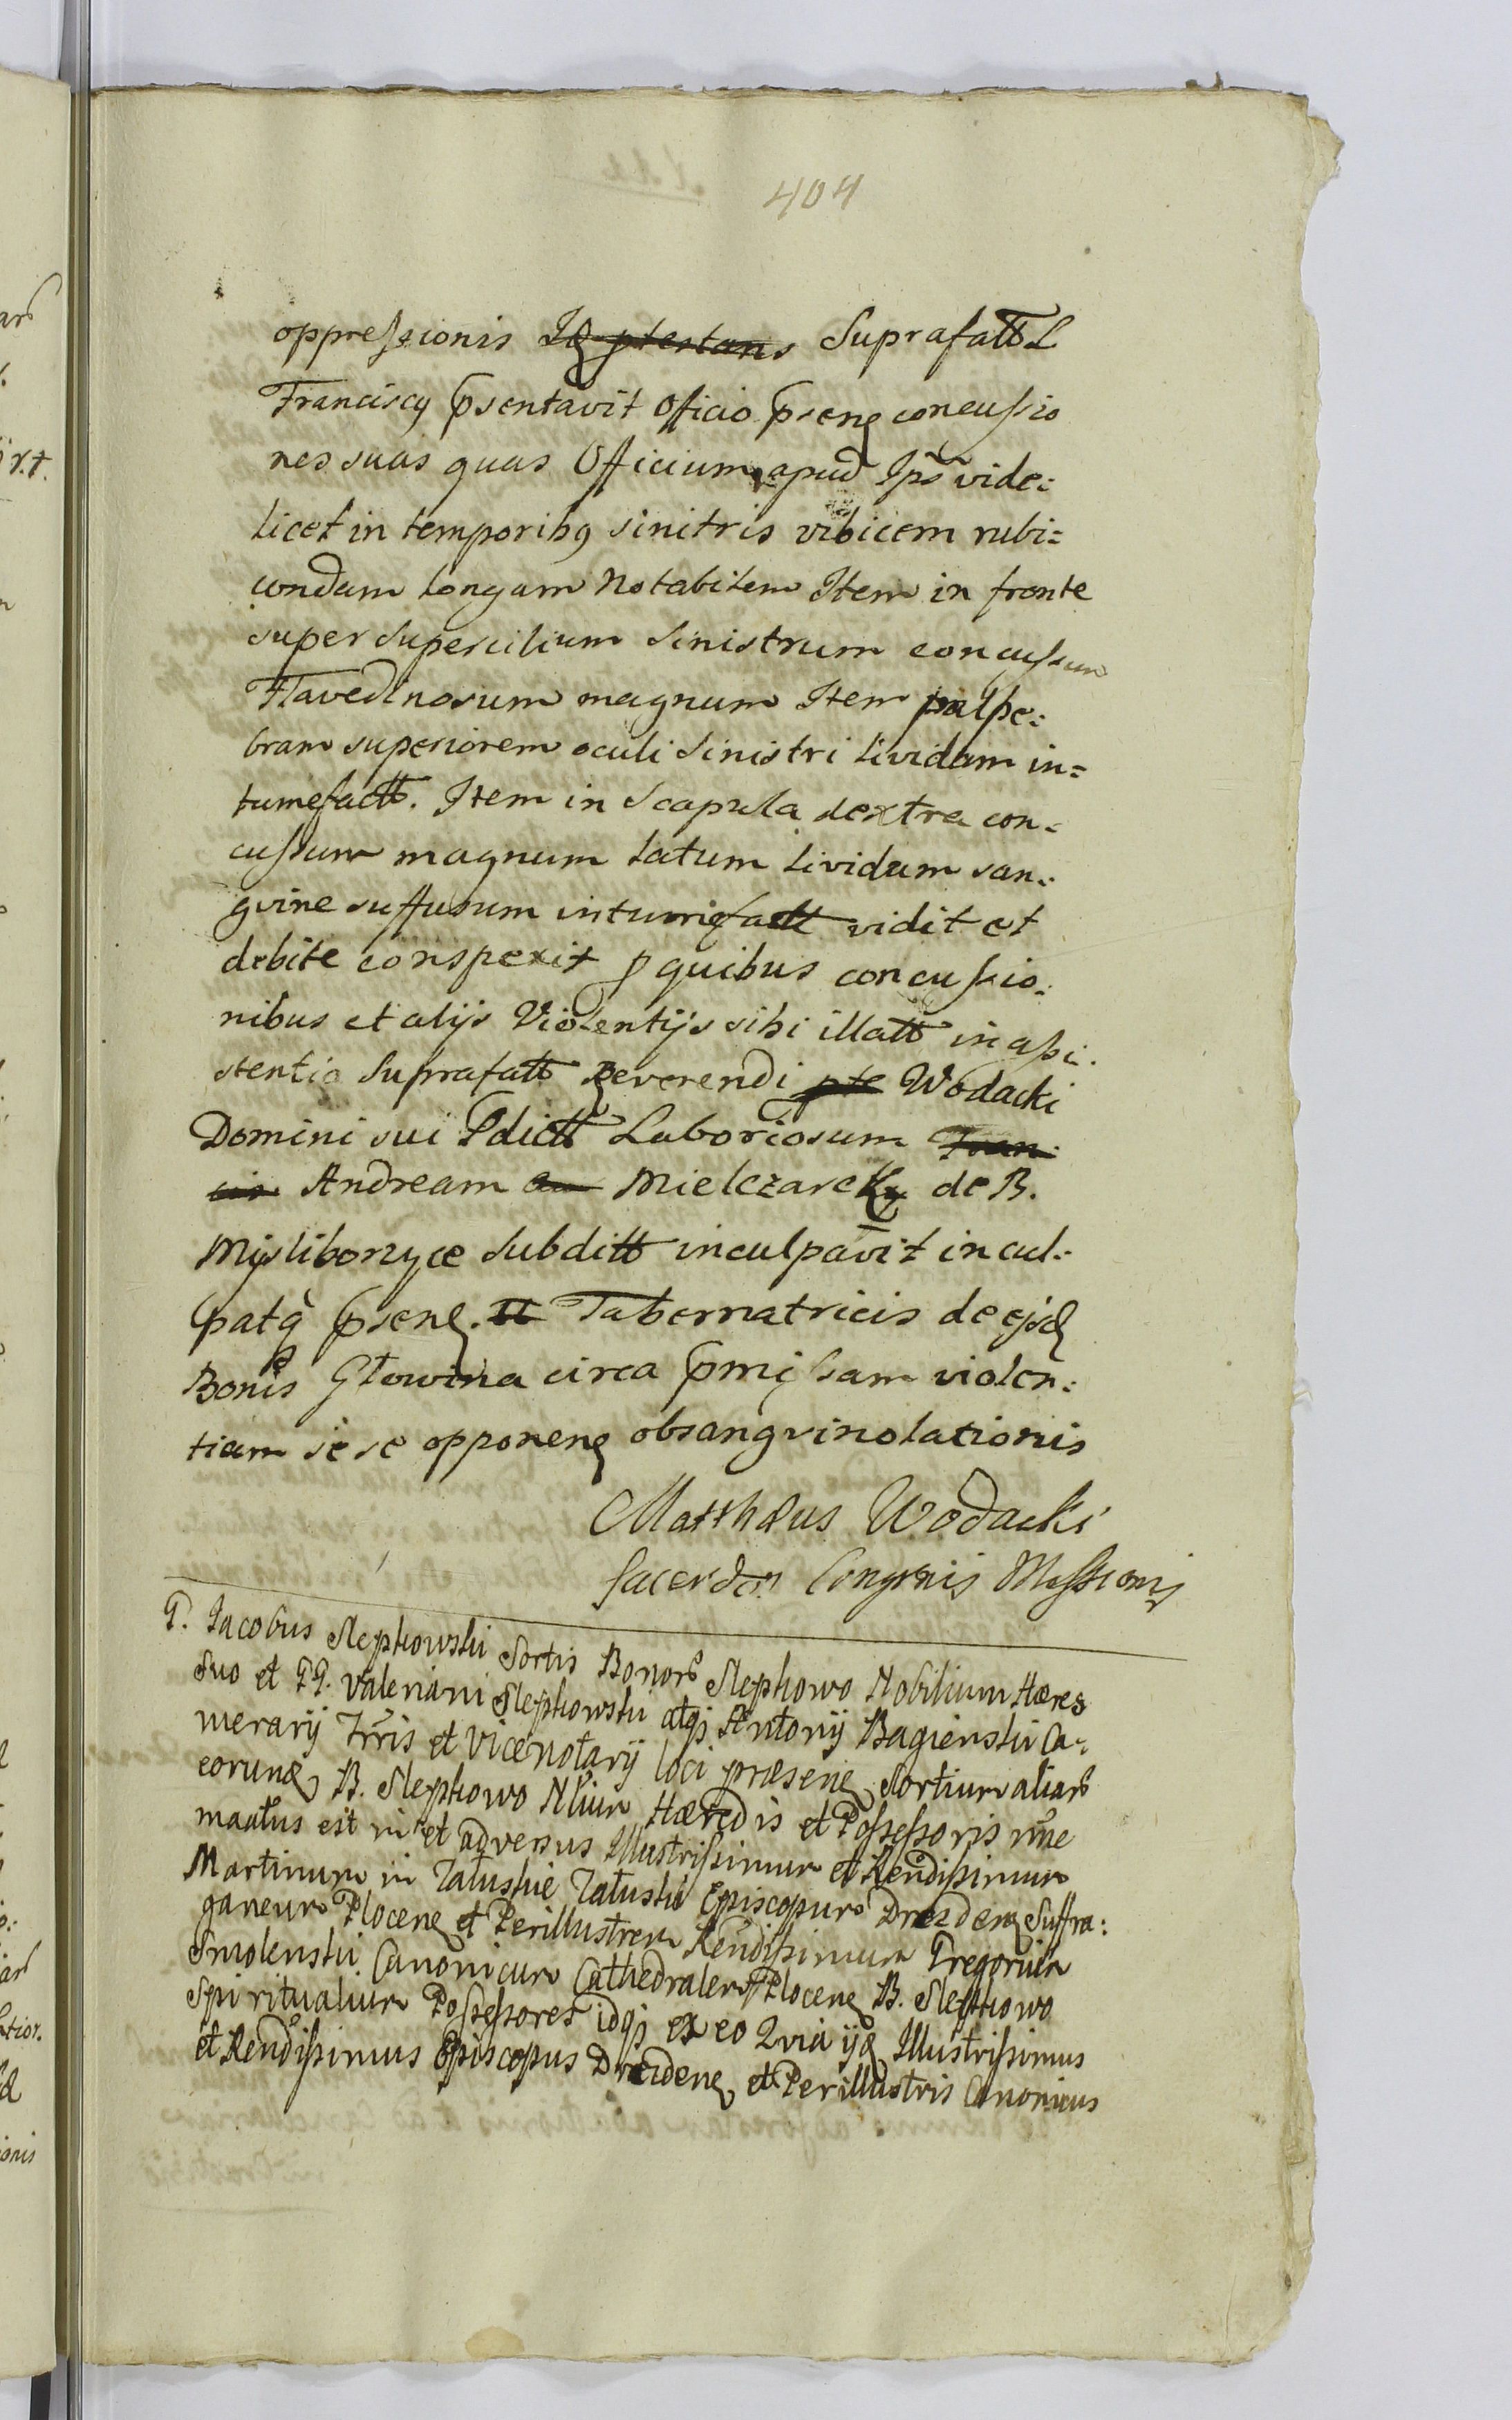 404
oppressionis Id ptestans Suprafatt L
Franciscq psentavit Officio psenq concussio
nes suas quas Officium apud Ips vide:
licet in temporibq sinitris vibicem rubi:
cundam longam notabilem Item in fronte
super supercilium Sinistrum concussum
Flavedinosum magnum Item palpe:
bram superiorem oculi Sinistri lividam in:
tumefactt. Item in Scapula dextra con:
cussum magnum latum lividum san:
gvine suffusum intumefactt vidit et
debite conspexit p quibus concussio:
nibus et alijs Violentijs sibi illatt in assi:
stentia Suprafatt Reverendi pte Wodacki
Domini sui Pdictt Laboriosum Fran:
cis Andream Mielczarek de B.
Mysliborzyce Subditt inculpavit incul:
patq psenq. Tt Tabernatricis de ejsd
Bonis Głowina circa pmissam violen:
tiam sese opponenq obsangvinolationis
Matthæus Wodacki
Sacerdos Congrnis Missionis
G. Iacobus Slepkowski Sortis Bonorr Slepkowo Nobilium Hæres
Suo et GG. Valeriani Slepkowski atqj Antonij Bagienski Ca:
merarij Trris et Vicenotarij loci præsenq Sortium aliarr
eorundq B. Slepkowo Nlium Hæredis et Possessoris nne
maatus est in et adversus Illustrissimum et Rendissimum
Martinum in Załuskie Załuski Episcopum Drasdenq Suffra:
ganeum Plocenq et Perillustrem Rendissimum Gregorium
Smolenski Canonicum Cathedralem Plocenq B. Slepkowo
Spiritualium Possessores idqj ex eo Qvia ijd Illustrissimus
et Rendissimus Episcopus Drasdenq et Perillustris Canonicus